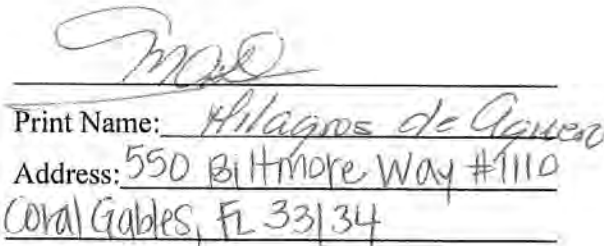 Print Name: Milagros de Aguero
Address: 550 Biltmore Way #1110
Coral Gables, FL 33134